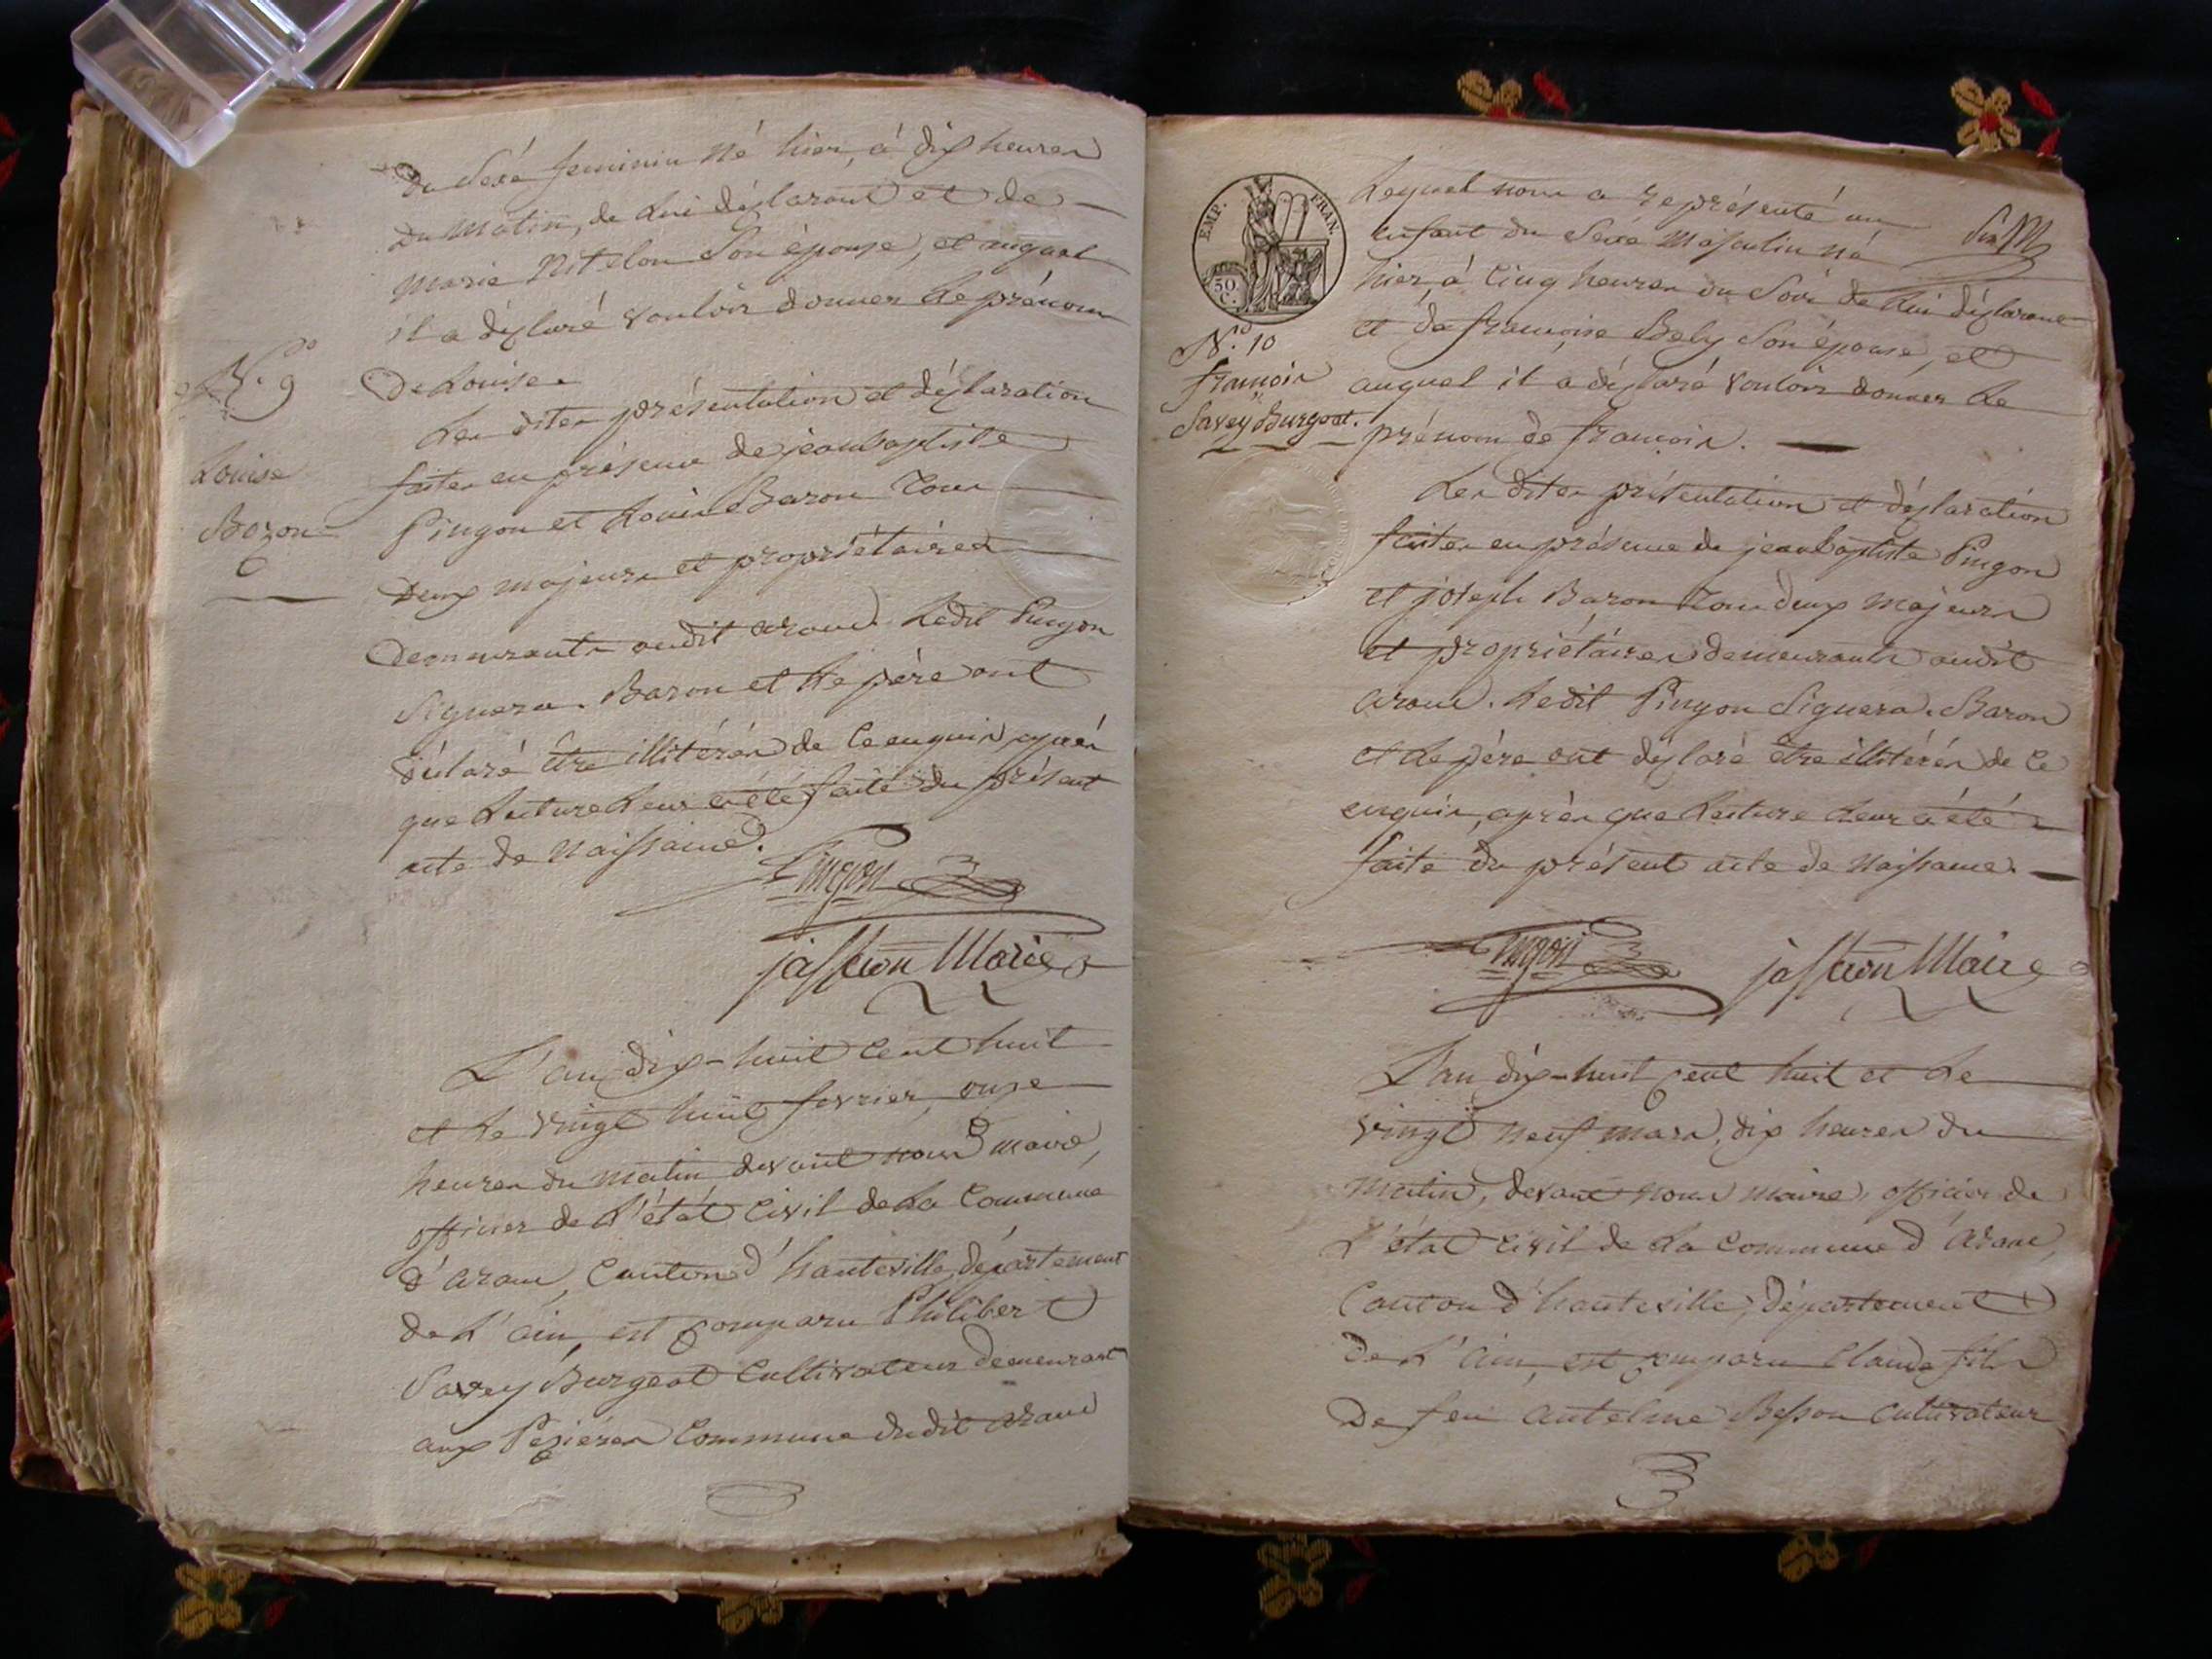 du Sexe feminin né hier, à dix heures
du Matin, de Lui déclarant et de
marie Nitelon Son épouse, et auquel
il a déclaré vouloir donner Le prénom
de Louise.
N.º 9
Louise
Bozon
Les dites présentation et déclaration
faites en présence de jeanbaptiste
Pingon et Louis Baron Tous
deux majeurs et propriétaires
demeurants audit arane. Ledit Pingon
Signera. Baron et Le père ont
déclaré être illitérés de Ce enquis, après
que Lecture Leur a été faite du présent
acte de Naissance.
Pingon
jasseron Maire
L'an dix-huit Cent huit
et Le vingt huit fevrier, onze
heures du matin devant nous maire,
officier de L'état Civil de La Commune
d'arane, Canton d'hauteville, département
de L'ain, est Comparu Philibert
Savey Burgeat Cultivateur demeurant
aux Pezières Commune dudit arane
EMP. FRAN.
50 C.
Lequel nous a représenté un
enfant du Sexe Masculin né
hier, à Cinq heures du Soir de Lui déclarant
et de françoise Bely Son épouse, et
auquel il a déclaré vouloir donner Le
prénom de françois.
N.º 10
françois
Savey Burgeat.
Les dites présentation et déclaration
faites en présence de jeanbaptiste Pingon
et joseph Baron Tous deux Majeurs
et propriétaires demeurants audit
arane. Ledit Pingon Signera. Baron
et Le père ont déclaré être illitérés de Ce
enquis, après que Lecture Leur a été
faite du présent acte de Naissance.
Pingon jasseron Maire
L'an dix-huit Cent huit et Le
vingt neuf mars, dix heures du
matin, devant nous maire, officier de
L'état Civil de La Commune d'arane,
Canton d'hauteville, département
de L'ain, est Comparu Claude fils
de feu antelme Besson Cultivateur